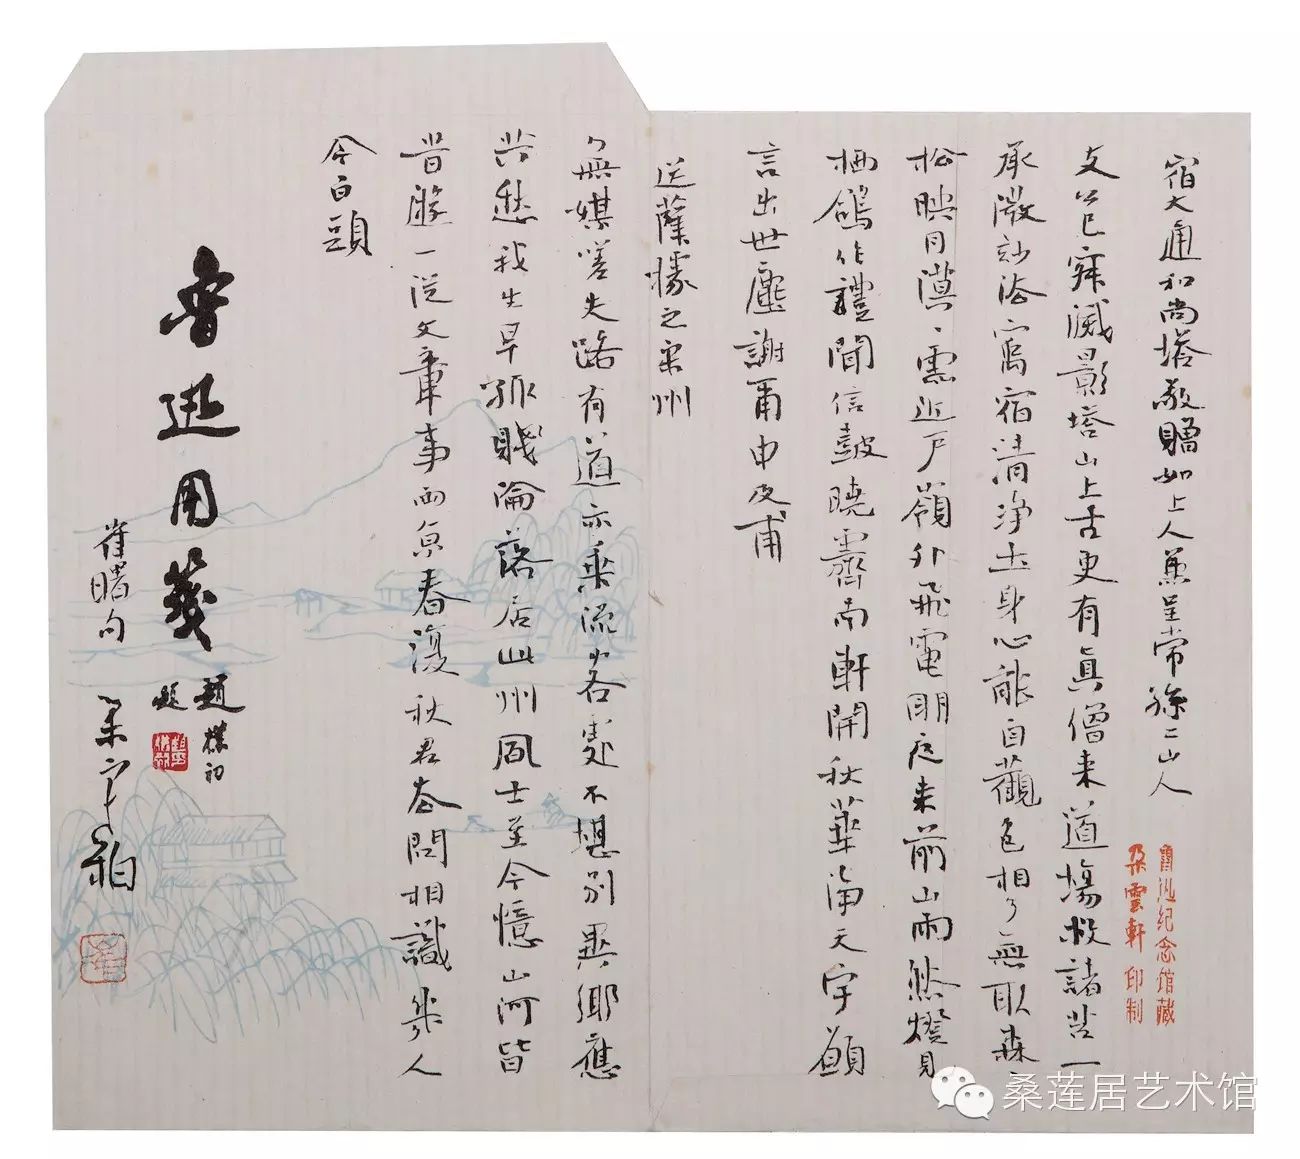 宿大通和尚塔敬贈如上人兼呈常孫二山人
支公已寂滅影塔山上古更有真僧来道場救諸苦一
承微妙法寓宿清净土身心能自觀色相了無取森〻
松映月漠〻雲近户嶺外飛電明夜来前山雨然燈見
栖鴿作禮聞信鼓曉霽南軒開秋華净天宇願
言出世塵謝爾申及甫
送薛據之宋州
無媒嗟失路有道亦乘流客處不堪别異鄉應
共愁我生早孤賤淪落居此州風土至今憶山河皆
昔遊一從文章事兩京春復秋君去問相識幾人
今白頭
魯迅用箋
趙樸初
題
崔曙句
魯迅纪念馆藏
朵雲軒印制
桑莲居艺术馆